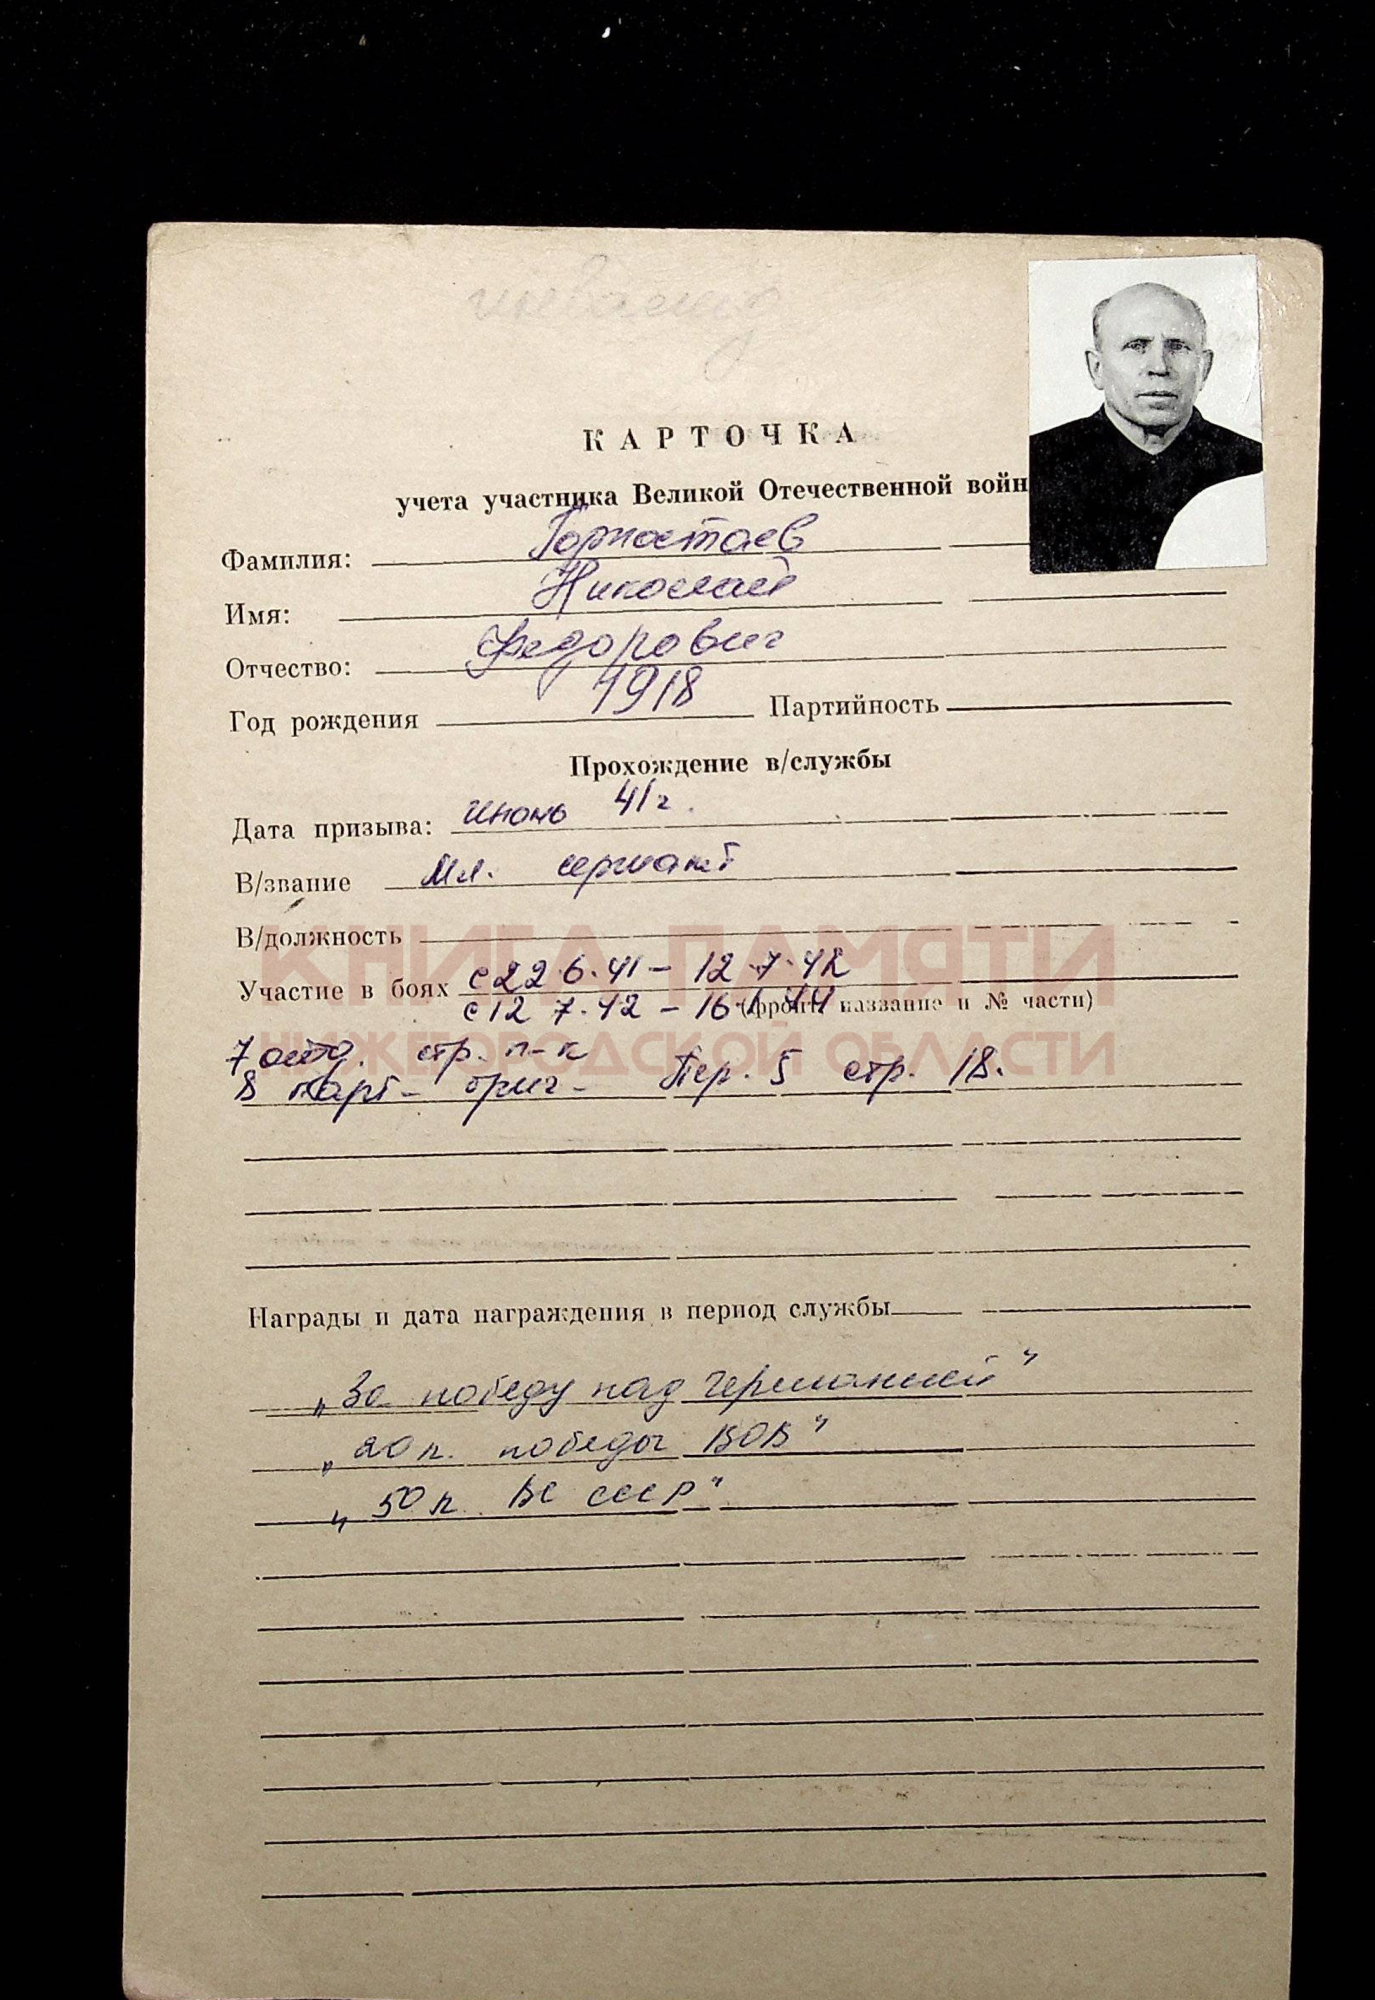 инвалид
КАРТОЧКА
учета участника Великой Отечественной войн
Фамилия: Горностаев
Имя: Николай
Отчество: Федорович
Год рождения 1918 Партийность
Прохождение в/службы
Дата призыва: июнь 41г.
В/звание Мл. сержант
В/должность
КНИГА ПАМЯТИ
Участие в боях с 22 6.41 – 12.7.42
с 12 7.42 – 16 1 44 (фронт название и № части)
НИЖЕГОРОДСКОЙ ОБЛАСТИ
7 отд. стр. п-к
8 парт– бриг– Пер. 5 стр. 18.
Награды и дата награждения в период службы
„За победу над Германией"
„20 л. победы ВОВ"
„50 л. ВС СССР"